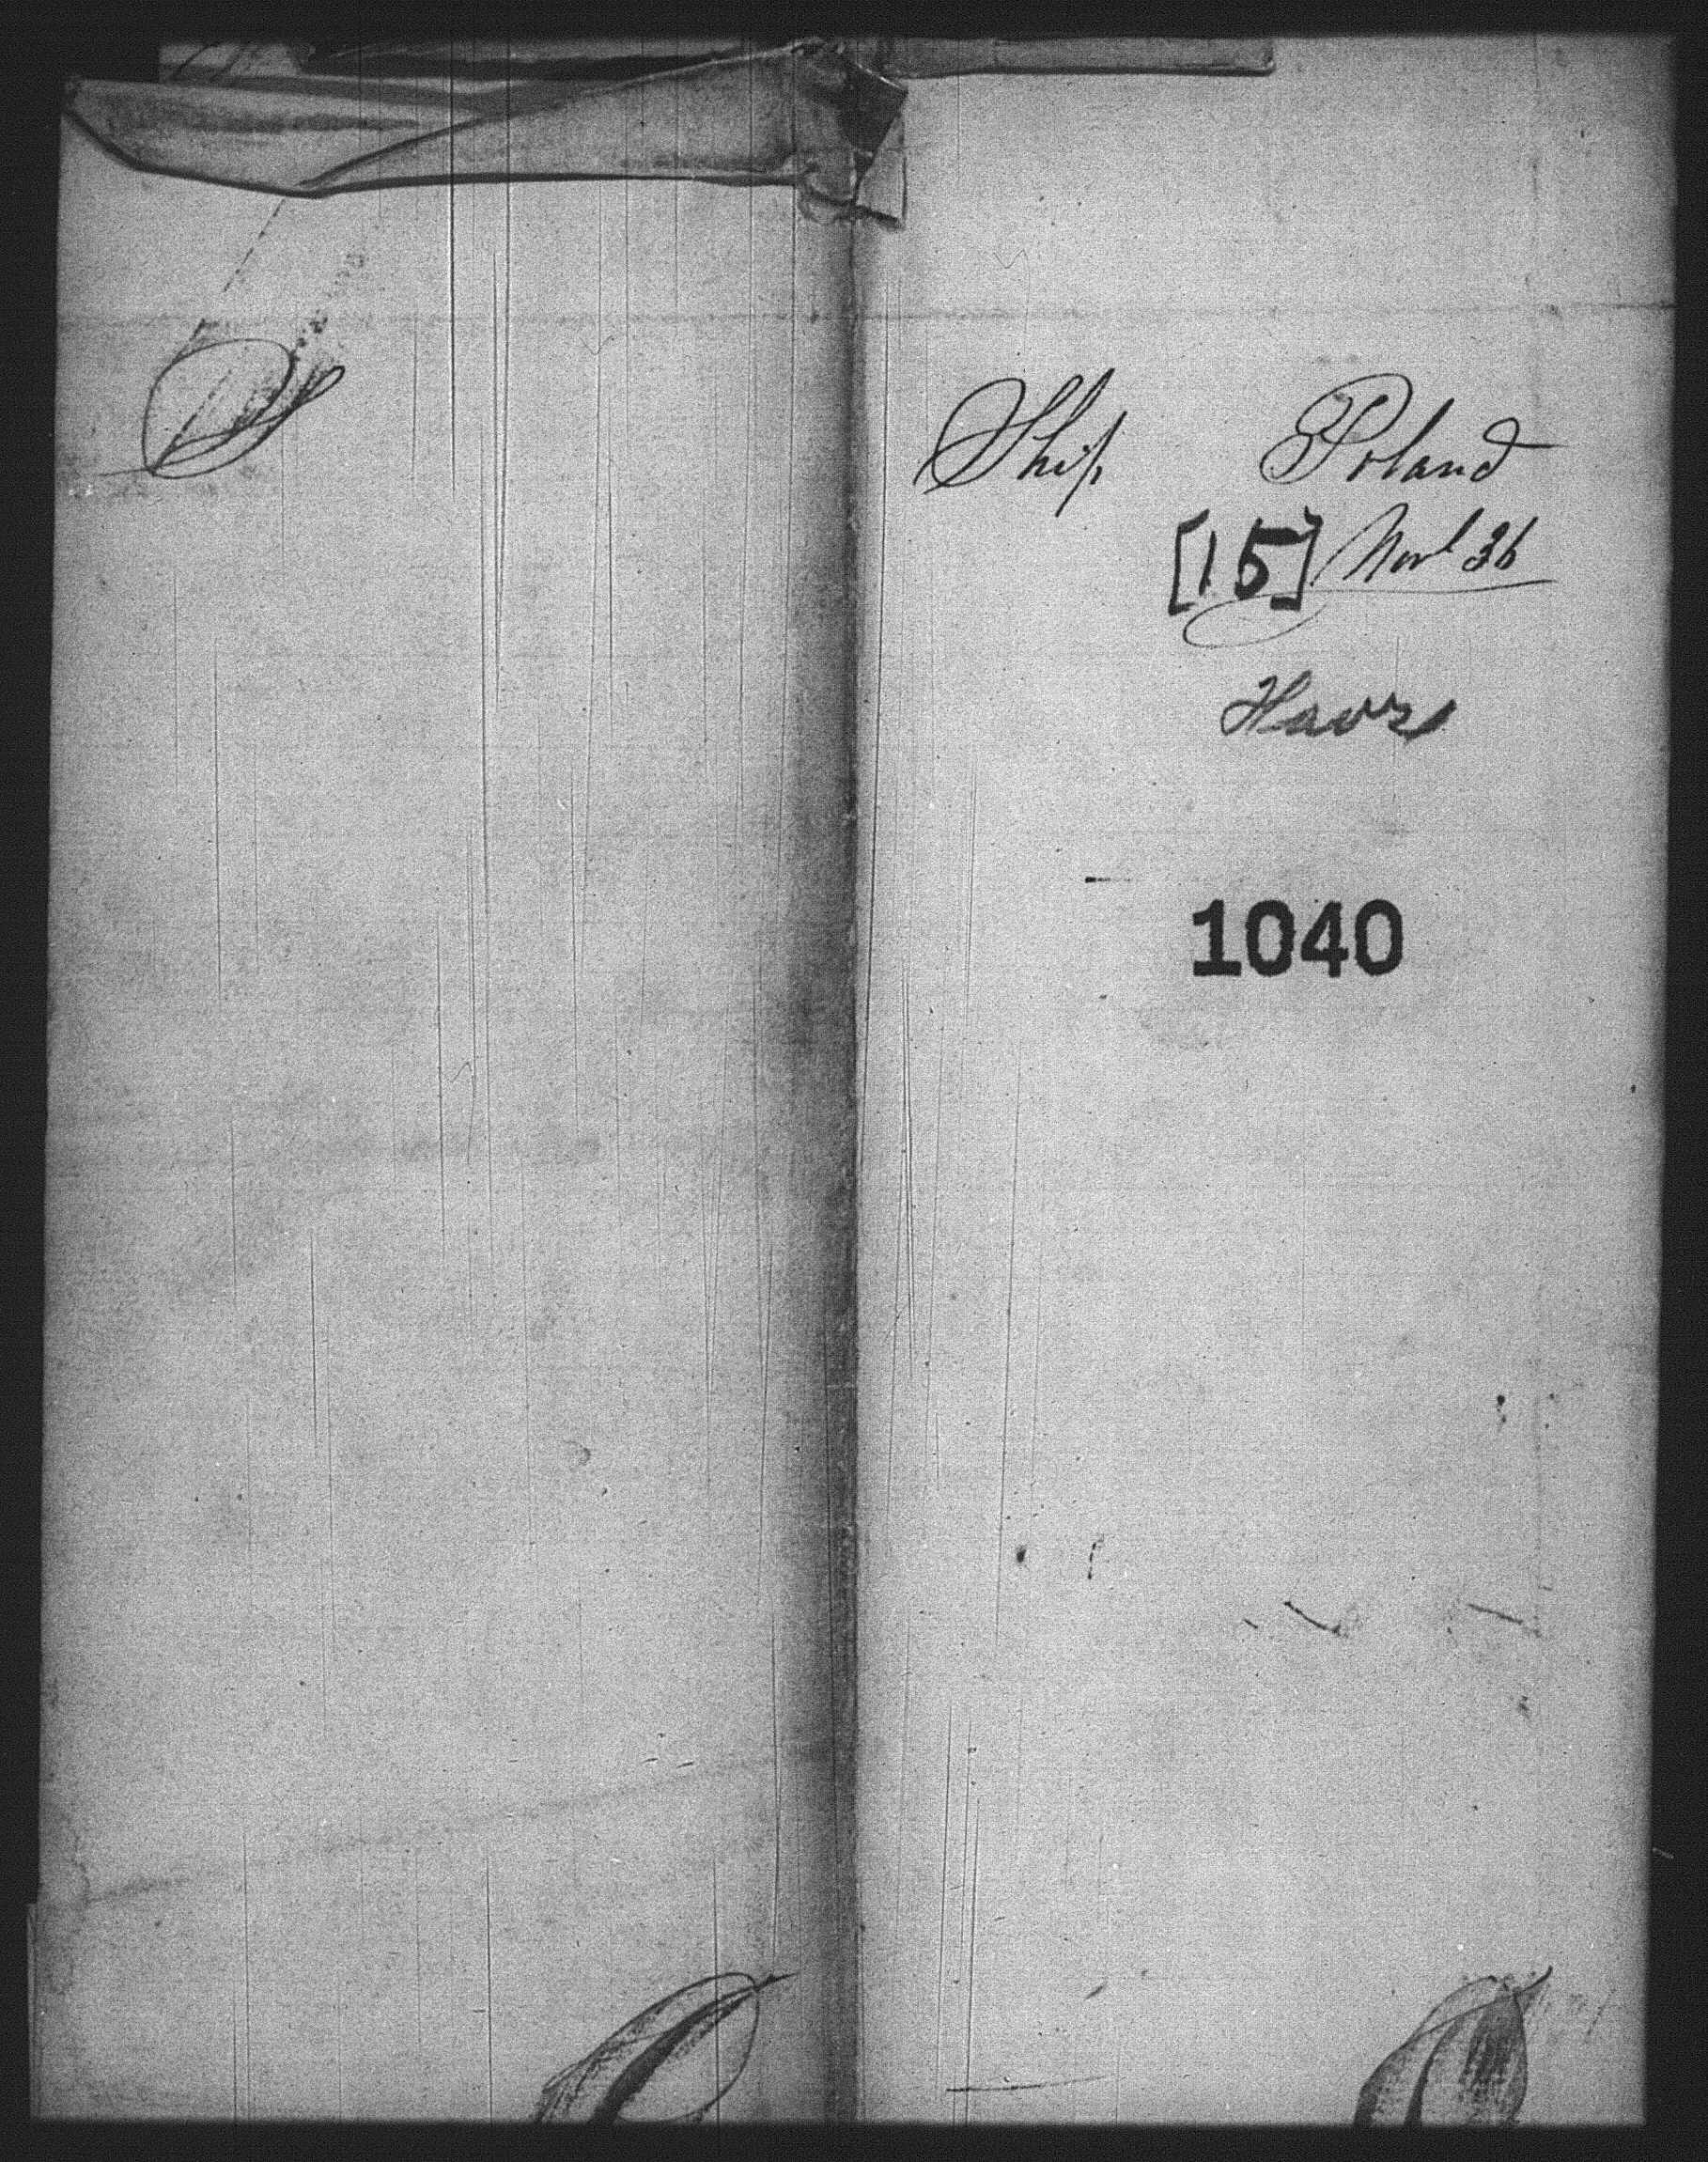 Ship Poland
[15] Nov 36
Havre
1040